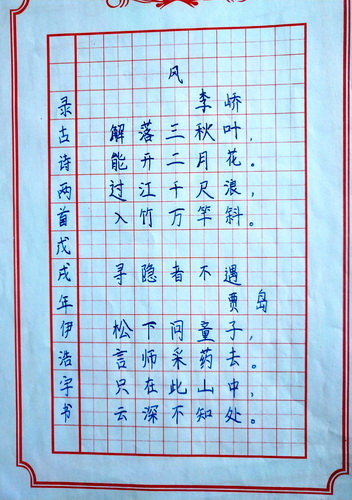 风
李峤
解落三秋叶，
能开二月花。
过江千尺浪，
入竹万竿斜。
寻隐者不遇
贾岛
松下问童子，
言师采药去。
只在此山中，
云深不知处。
录古诗两首戊戌年伊浩宇书